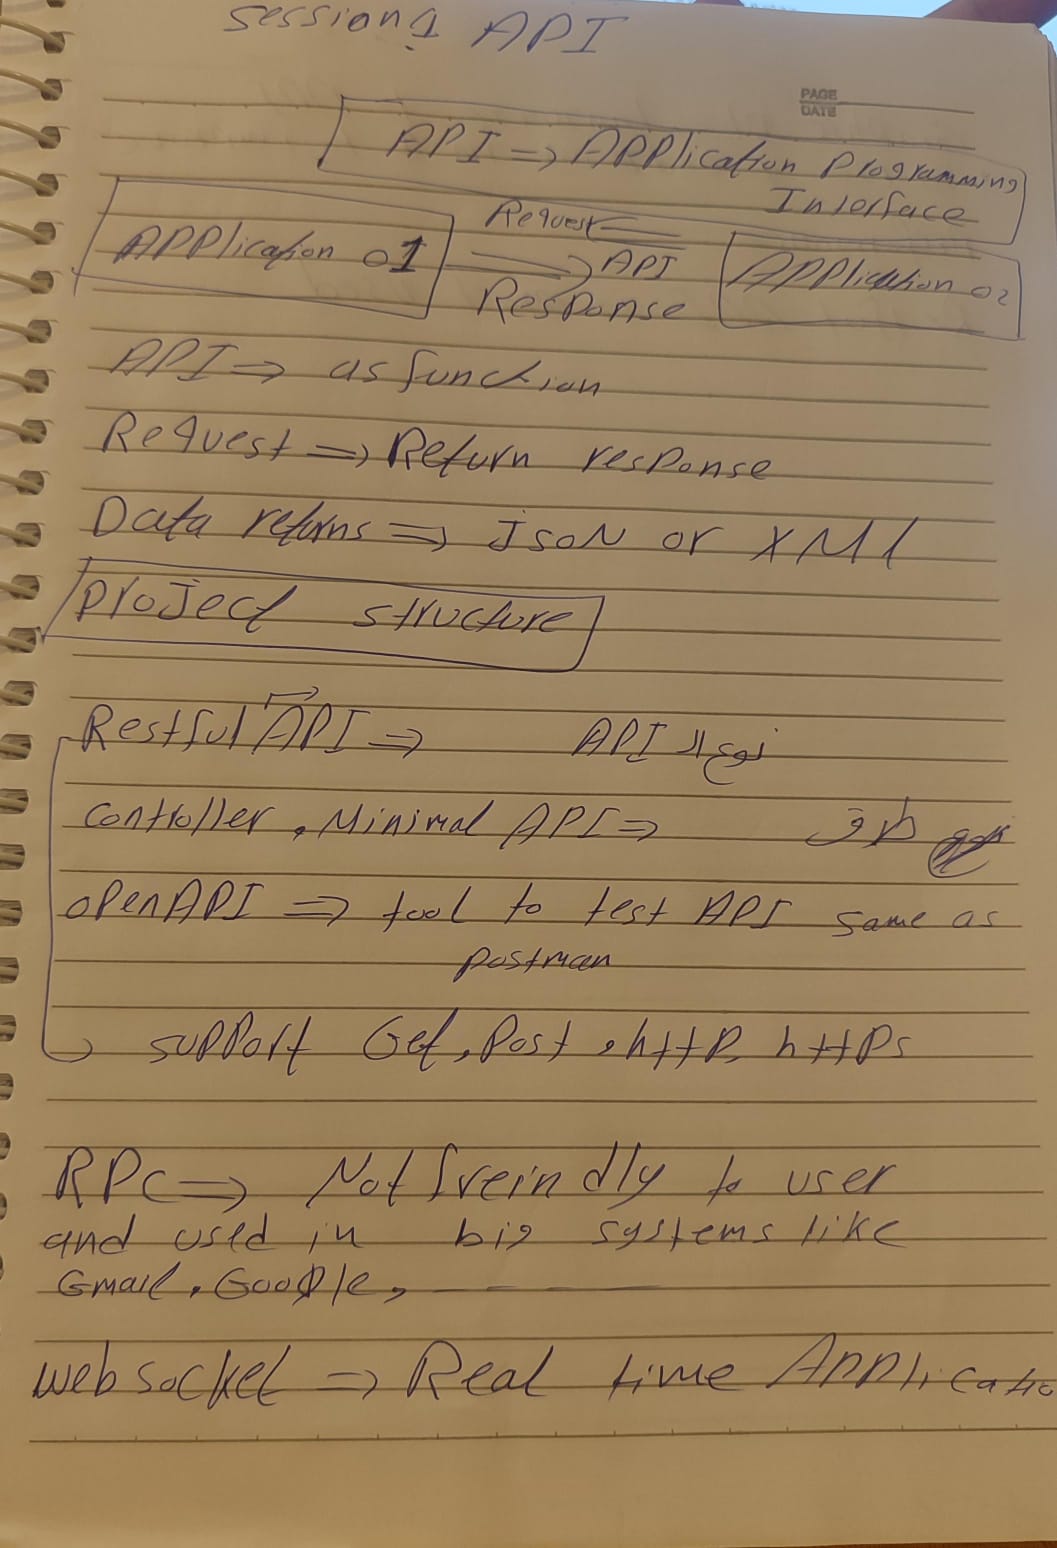 session1 API
PAGE
DATE
API => Application Programming
Interface
Request
Application 01 API Application 02
Response
API => as function
Request => Return response
Data returns => JSON or XML
Project structure
Restful API => نوع ال API
Controller, Minimal API => طرق
openAPI => tool to test API same as
postman
support Get, Post, http, https
RPC => Not freindly to user
and used in big systems like
Gmail, Google, ----
web socket => Real time Applicatio